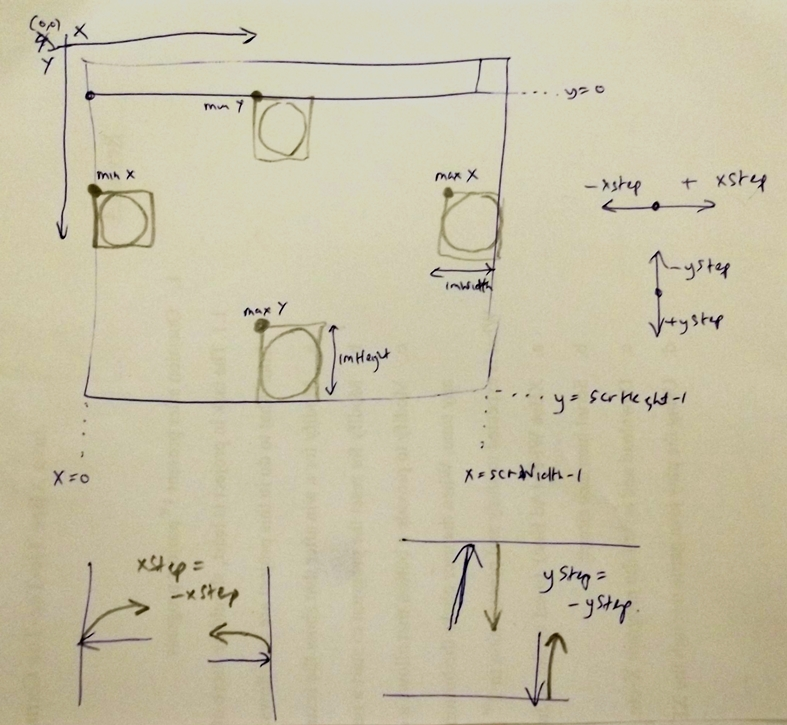 (0,0)
X
Y
min Y
y=0
min X
max X
-xstep + xstep
imWidth
-ystep
+ystep
max Y
imHeight
y = scrHeight-1
x=0
x=scrWidth-1
xstep =
-xstep
ystep =
-ystep.